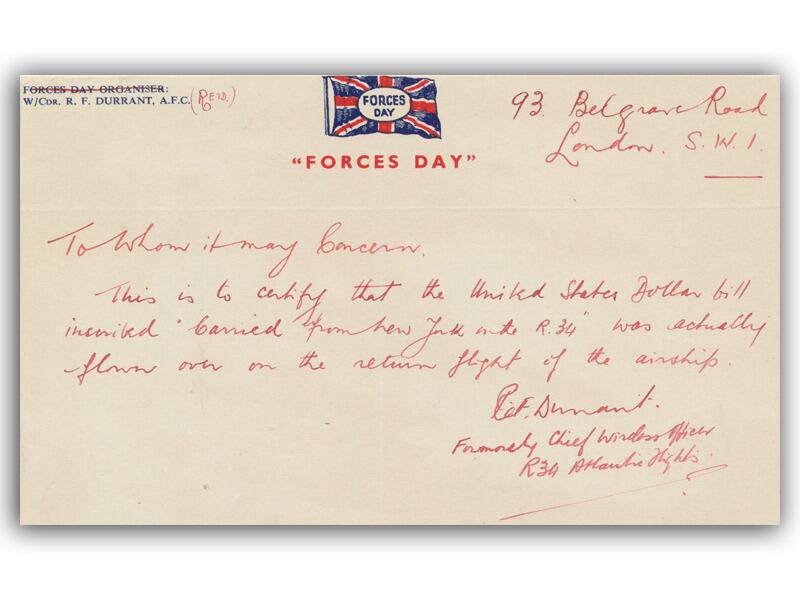 FORCES DAY ORGANISER:
W/CDR. R. F. DURRANT, A.F.C. (RETD.)
FORCES
DAY
"FORCES DAY"
93. Belgrave Road
London. S.W.1.
To Whom it may Concern.
This is to certify that the United States Dollar bill
inscribed "Carried from New York on the R.34" was actually
flown over on the return flight of the airship.
R.F. Durrant.
Formerly Chief Wireless Officer
R34 Atlantic Flights.